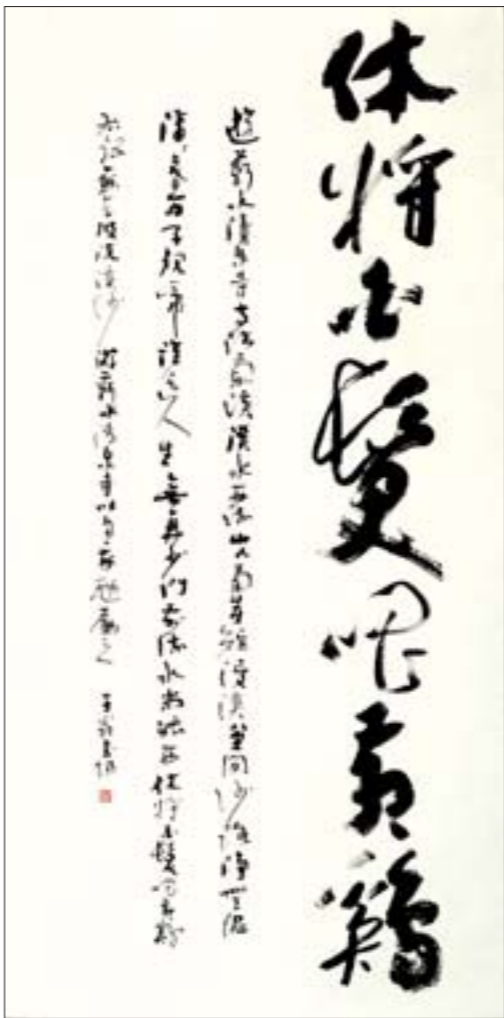 休將白髮唱黃鷄
遊蘄水清泉寺寺臨蘭溪溪水西流山下蘭芽短浸溪松間沙路淨無泥
瀟瀟暮雨子規啼誰道人生無再少門前流水尚能西休將白髮唱黃鷄
浣溪沙遊蘄水清泉寺